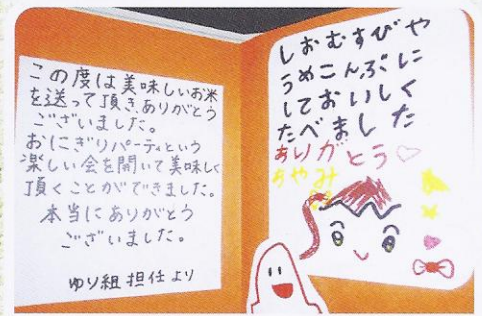 この度は美味しいお米
を送って頂き、ありがとう
ございました。
おにぎりパーティという
楽しい会を開いて美味しく
頂くことができました。
本当にありがとう
ございました。
ゆり組 担任より
しおむすびや
うめこんぶに
しておいしく
たべました
ありがとう♡
あやみ